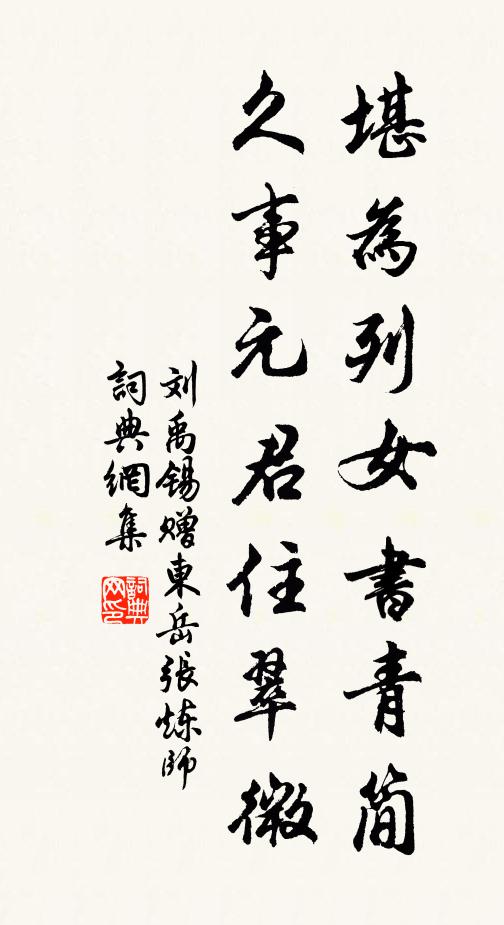 堪為列女書青简
久事元君住翠微
刘禹锡赠東岳張炼師
詞典網集
詞典網印